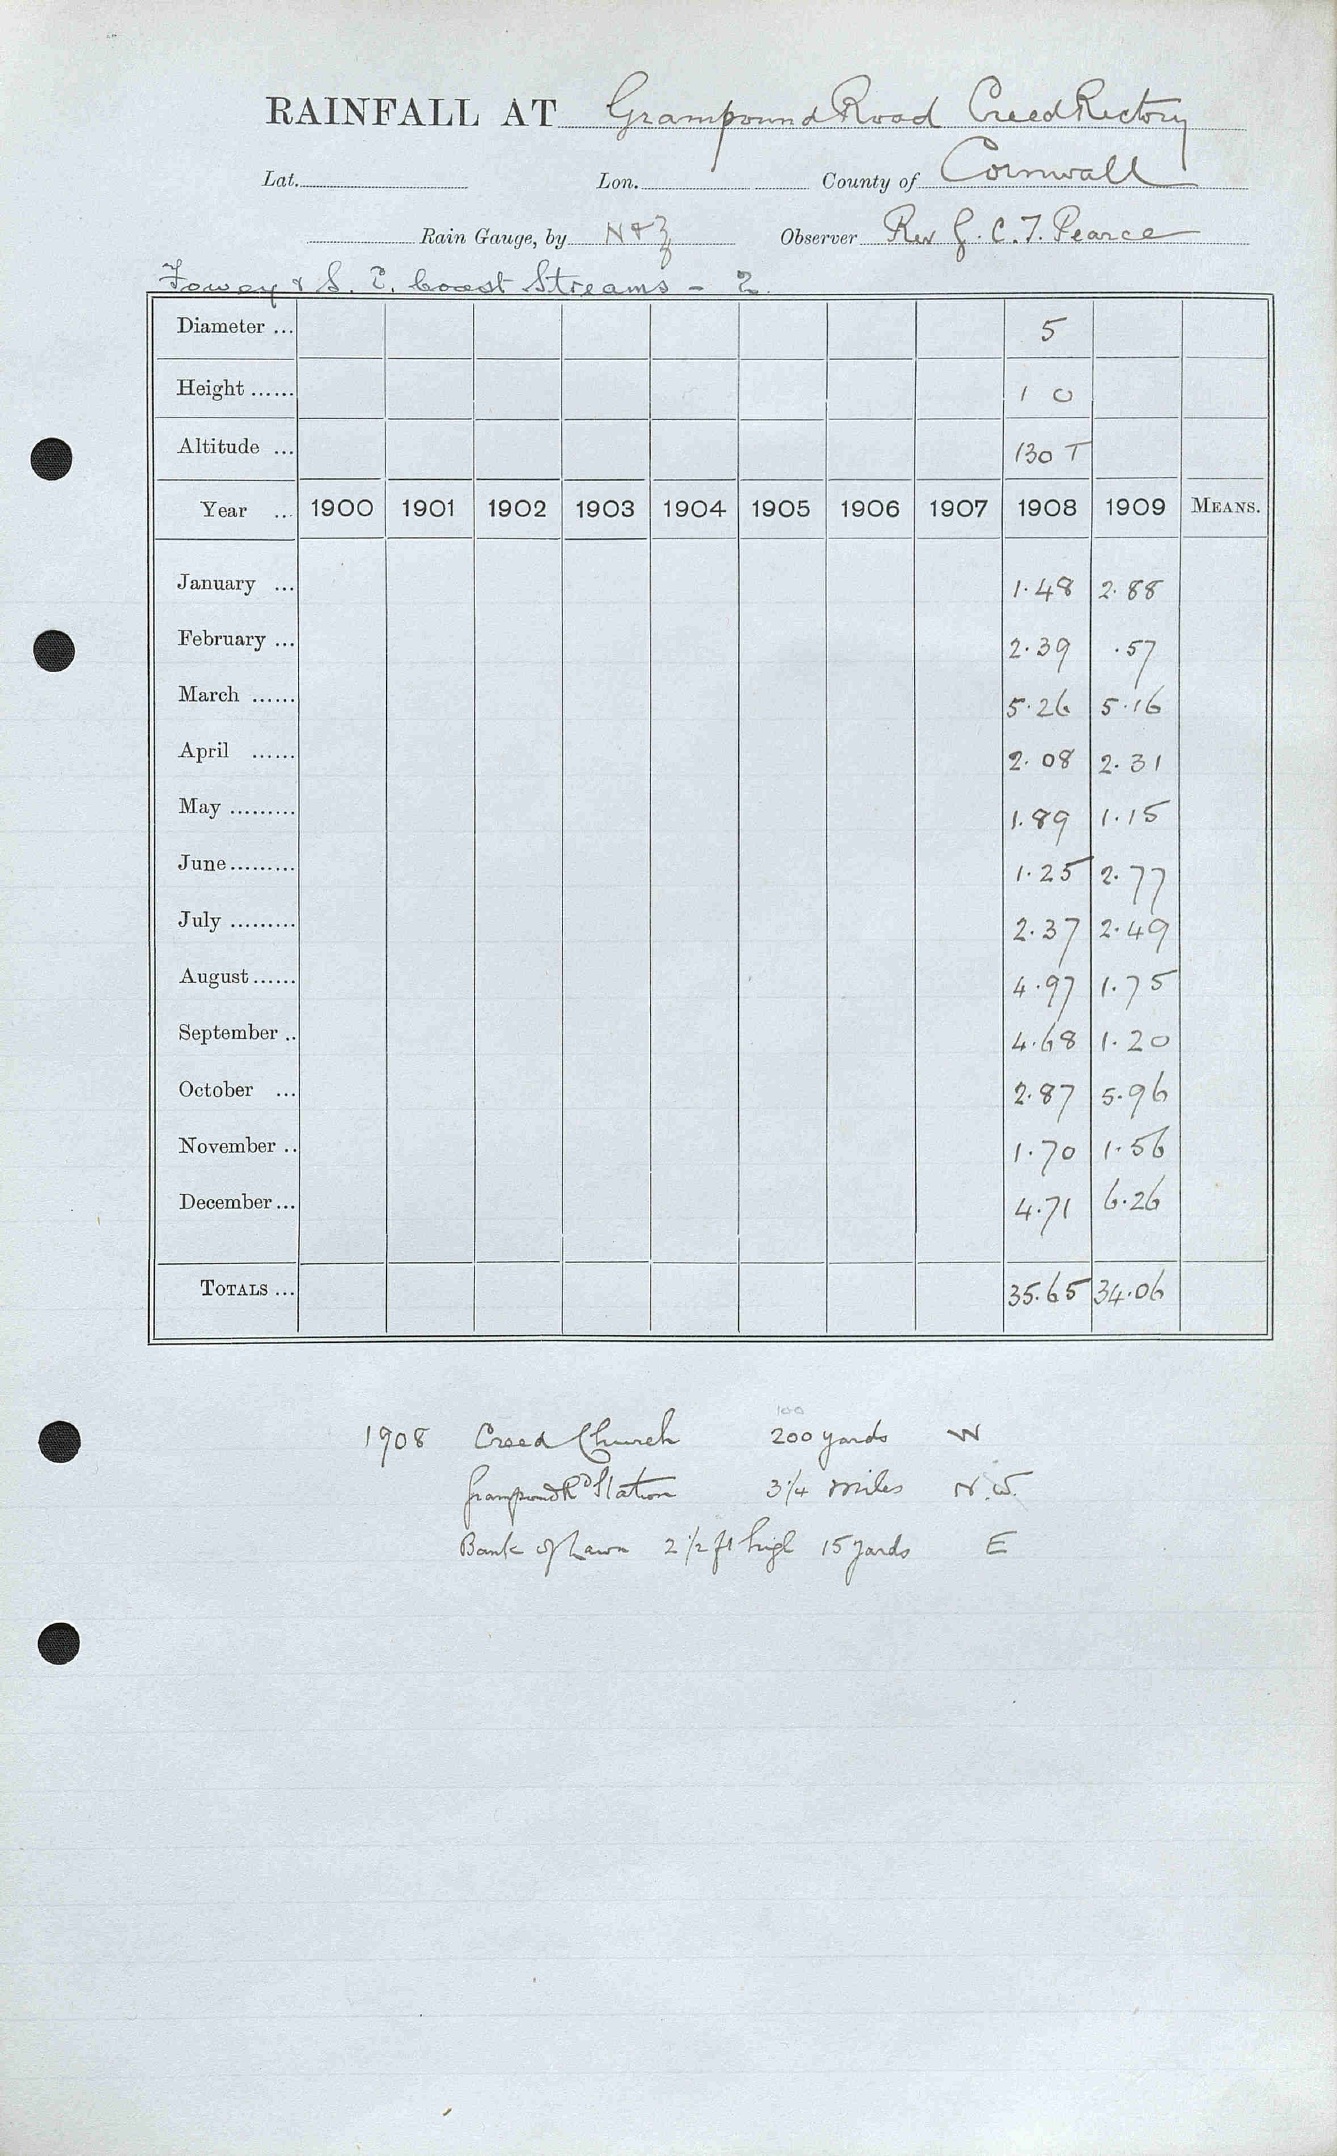 RAINFALL AT Grampound Road Creed Rectory
Lat. Lon. County of Cornwall
Rain Gauge, by N & Z Observer Rev G. C. T. Pearce
Fowey & S. E. Coast Streams - 2.
Diameter ... 5
Height ...... 1 0
Altitude ... 130 T
Year ... 1900 1901 1902 1903 1904 1905 1906 1907 1908 1909 MEANS.
January ... 1.48 2.88
February ... 2.39 .57
March ...... 5.26 5.16
April ...... 2.08 2.31
May ......... 1.89 1.15
June ......... 1.25 2.77
July ......... 2.37 2.49
August ...... 4.97 1.75
September .. 4.68 1.20
October ... 2.87 5.96
November .. 1.70 1.56
December ... 4.71 6.26
TOTALS ... 35.65 34.06
100
1908 Creed Church 200 yards W
Grampound Rd Station 3 1/4 miles N.W.
Bank of Lawn 2 1/2 ft high 15 yards E